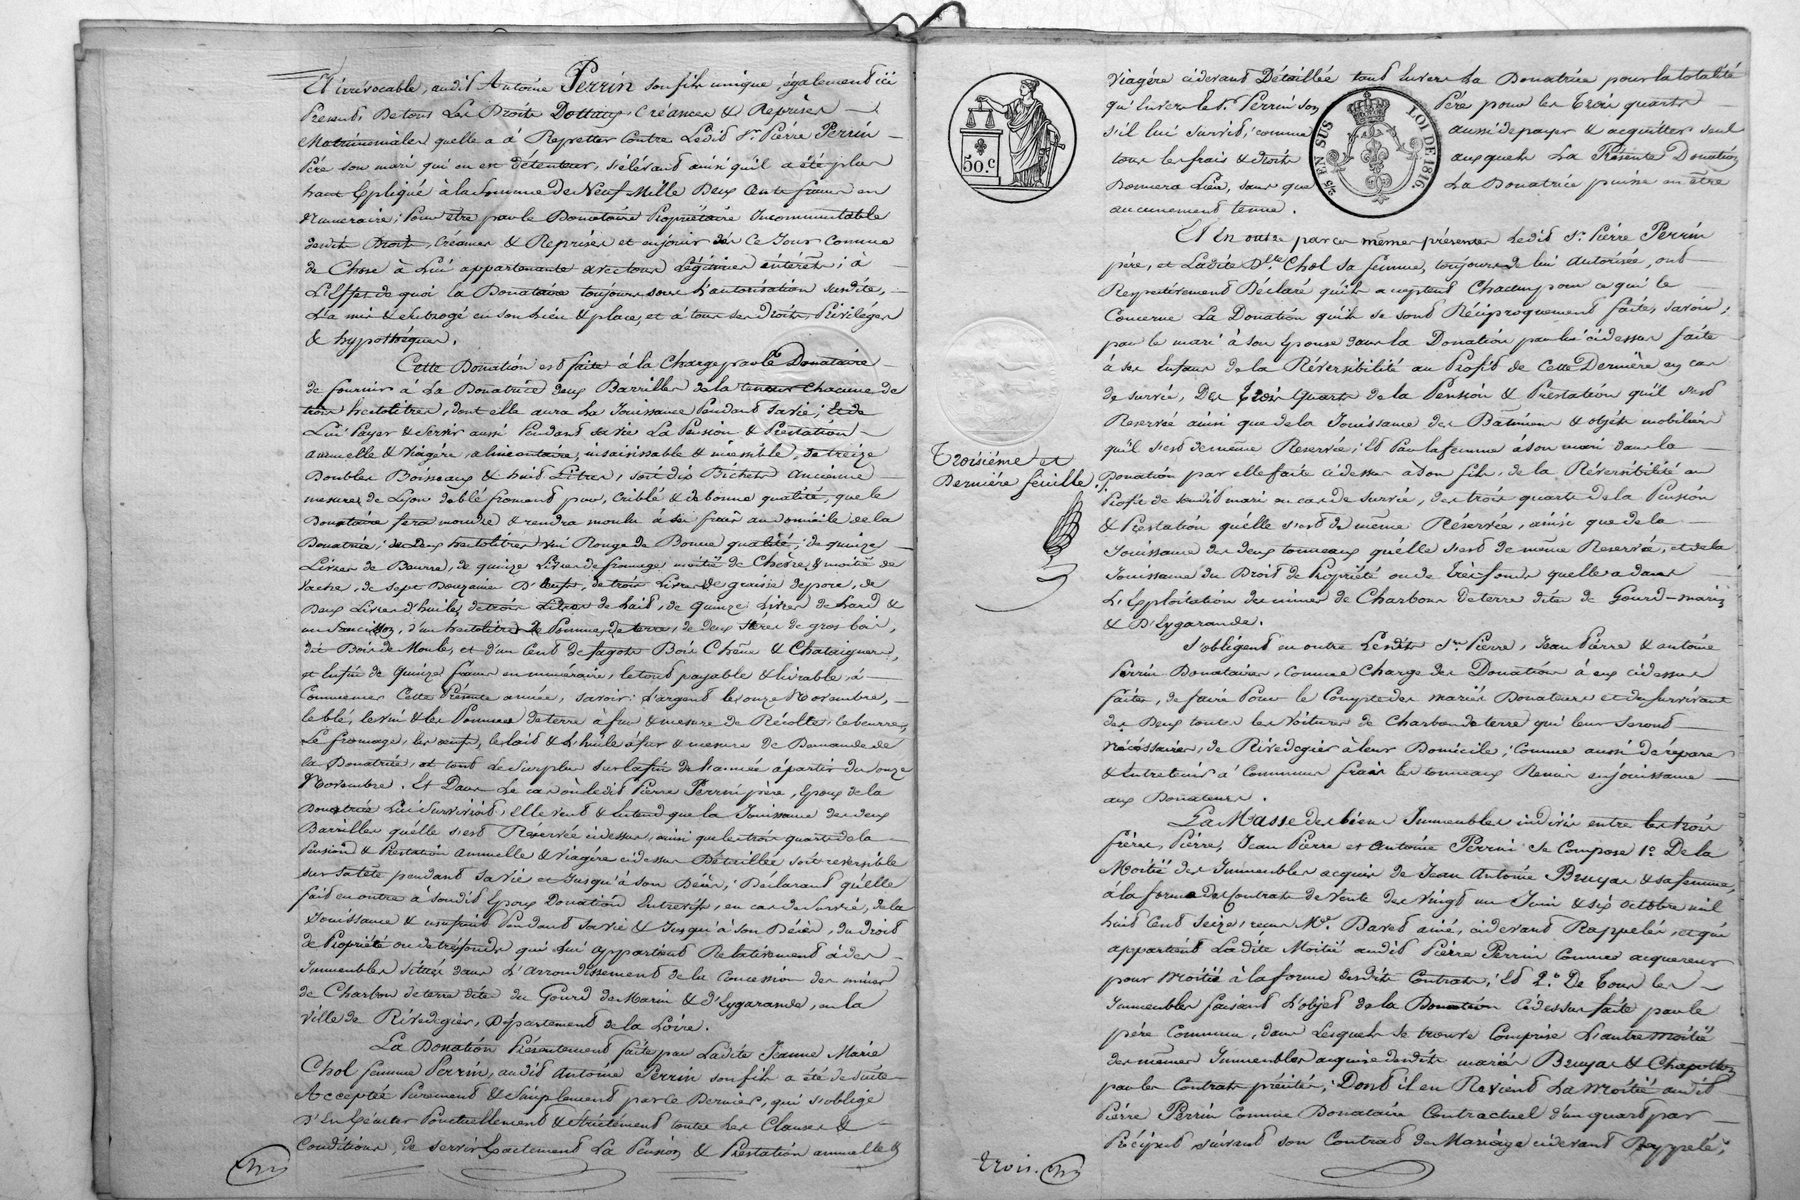 Et irrévocable, audit Antoine Perrin son fils unique, également ici
Présent De tous Les Droits Dottaux, Créances & Reprises
Matrimoniales quelle a à Repretter Contre Ledit Sr. Pierre Perrin
Père son mari qui en est détenteur, s'élevant ainsi qu'il a été plus
haut Expliqué à la Somme De Neuf Mille Deux Cents francs en
Numéraire; Pour être par le Donataire Propriétaire Incommutable
desdits Droits, Créances & Reprises et en jouir dès Ce Jour Comme
de Chose à Lui appartenante avec tous Légitimes intérêts; à
L'Effet de quoi la Donataire toujours sous L'autorisation susdite,
L'a mis & subrogé en son Lieu & place, et à tous ses Droits, Privilèges
& hypothéques.
Cette Donation est faite à la Charge par le Donataire
de fournir à La Donatrice deux Barrilles de la teneur Chacune de
trois hectolitres, dont elle aura La Jouissance Pendant sa vie; Et de
Lui Payer & Servir aussi Pendant sa vie La Pension & Prestation
annuelle & viagère, alimentaire, insaisissable & incessible, de treize
Doubles Boisseaux & huit Litres, soit dix Bichets ancienne
mesure de Lyon de blé froment pur, Criblé & de bonne qualité, que le
Donataire fera moudre & rendra moulu à ses frais au domicile de la
Donatrice; de deux hectolitres vin Rouge de Bonne qualité; de quinze
Livres de Beurre, de quinze Livres de fromage moitié de Chèvre & moitié de
vache, de sept Douzaines D'œufs, de trois Livres de graisse de porc, de
Deux Livres d'huile, de trois Litres de Lait, de quinze Livres de Lard &
un Saucisson, d'un hectolitre de Pommes de terre, de deux stères de gros bois,
dit Bois de Moule, et d'un Cent de fagots Bois Chêne & Chataigner,
et Enfin de Quinze francs en numéraire, le tout payable & livrable, à
Commencer Cette Présente année, savoir: L'argent le onze Novembre,
le blé, le vin & les Pommes de terre à fur & mesure de Récolte, le beurre,
Le fromage, les œufs, le lait & L'huile à fur & mesure de Demande de
la Donatrice, et tout Le Surplus sur la fin de L'année à partir du onze
Novembre. Et Dans Le cas où ledit Pierre Perrin père, Epoux de la
Donatrice Lui Survivroit, elle veut & Entend que la Jouissance des deux
Barrilles qu'elle s'est Réservée ci dessus, ainsi que les trois quarts de la
Pension & Prestation annuelle & viagère ci dessus Détaillée soit reversible
sur sa tête pendant sa vie et Jusqu'à son Décès; Déclarant qu'elle
fait en outre à sondit Epoux Donation Entrevifs, en cas de Survie, de la
Jouissance & usufruit Pendant sa vie & Jusqu'à Son Décès, du droit
de Propriété ou de tréfonds qui lui appartient Relativement à des
Immeubles situés dans L'arrondissement de la Concession des mines
de Charbon de terre dite du Gourd de Marin & d'Egarande, en la
ville de Rivedegier, Département de la Loire.
La Donation Présentement faite par Ladite Jeanne Marie
Chol femme Perrin, audit Antoine Perrin son fils a été de Suite
Acceptée Purement & Simplement par Ce Dernier, qui s'oblige
D'en Exécuter Ponctuellement & Strictement toutes Les Clauses &
Conditions, de servir Exactement La Pension & Prestation annuelle &
50. c
25 EN SUS LOI DE 1816.
Troisième et
Dernière feuille.
viagère cidevant Détaillée tant Envers La Donatrice pour la totalité
qu'Envers le Sr. Perrin son Père pour les trois quarts
s'il lui survit; comme aussi de payer & acquitter seul
tous les frais & droits auxquels La Présente Donation
Donnera Lieu, sans que La Donatrice puisse en être
aucunement tenue.
Et En outre par ces mêmes présentes Ledit Sr. Pierre Perrin
père, et Ladite Dlle Chol sa femme, toujours de lui autorisée, ont
Respectivement Déclaré qu'ils acceptent Chacun pour ce qui le
Concerne La Donation qu'ils se sont Réciproquement faite, savoir;
par le mari à son Epouse dans la Donation par lui cidessus faite
à ses Enfans de la Réversibilité au Profit de Cette Dernière en cas
de survie, Des Trois Quarts de la Pension & Prestation qu'il s'est
Réservée ainsi que de la Jouissance des Bâtimens & objets mobiliers
qu'il s'est de même Réservée; Et Par la femme à son mari dans la
Donation par elle faite cidessus à son fils, de la Réversibilité au
Profit de sondit mari en cas de survie, des trois quarts de la Pension
& Prestation qu'elle s'est de même Réservée, ainsi que de la
Jouissance des deux tonneaux qu'elle s'est de même Réservée, et de la
Jouissance du Droit de Propriété ou de Tréfonds quelle a dans
L'Exploitation des mines de Charbon de terre dites de Gourd-marin
& D'Egarande.
S'obligent en outre Lesdits Srs. Pierre, Jean Pierre & antoine
Perrin Donataires, Comme Charge des Donations à eux cidessus
faites, de faire Pour le Compte des mariés Donateurs et du survivant
des Deux toutes les Voitures de Charbon de terre qui leur seront
Nécéssaires, de Rivedegier à leur Domicile; Comme aussi de réparer
& Entretenir à Communs frais les tonneaux Remis en jouissance
aux Donateurs.
La Masse des biens Immeubles indivis entre les trois
frères, Pierre, Jean Pierre et Antoine Perrin Se Compose 1º. De la
Moitié des Immeubles acquis de Jean Antoine Bruyas & sa femme,
à la forme des Contrats de Vente des Vingt un Juin & six octobre mil
huit Cent Seize, reçus Me. Baret ainé, cidevant Rappelés, et qui
appartient Ladite Moitié audit Pierre Perrin comme acquereur
pour Moitié à la forme desdits Contrats; Et 2º. De Tous les
Immeubles faisant L'objet de la Donation cidessus faite par le
père Commun, dans Lesquels se trouve Comprise L'autre moitié
des mêmes Immeubles acquis desdits mariés Bruyas & Chapollon
par les Contrats précités; Dont il en Revient La Moitié audit
Pierre Perrin Comme Donataire Contractuel d'un quart par
Préciput suivant son Contrat de Mariage cidevant Rappelé;
trois.